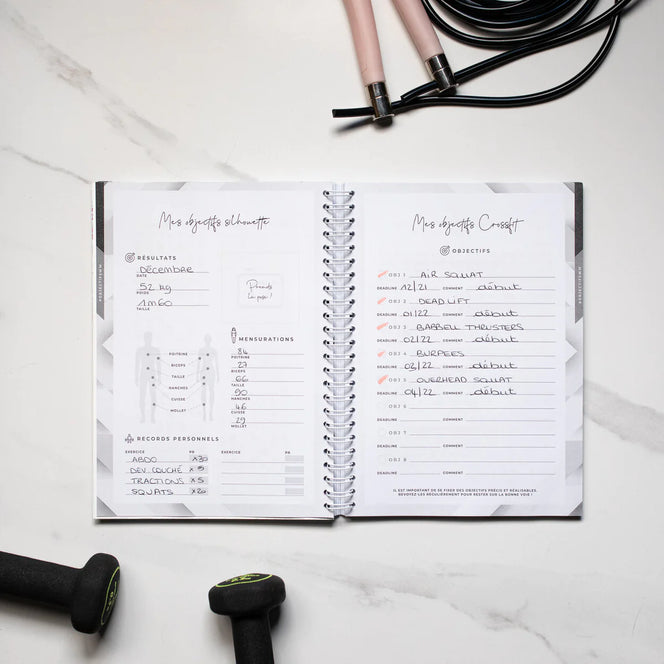 Mes objectifs silhouette
RÉSULTATS
Décembre
DATE
52 kg
POIDS
1m60
TAILLE
Prends
la pose !
MENSURATIONS
84
POITRINE
27
BICEPS
66
TAILLE
90
HANCHES
46
CUISSE
29
MOLLET
POITRINE
BICEPS
TAILLE
HANCHES
CUISSE
MOLLET
RECORDS PERSONNELS
EXERCICE PR EXERCICE PR
ABDO x30
DEV. COUCHÉ x
TRACTIONS x5
SQUATS x20
Mes objectifs Crossfit
OBJECTIFS
OBJ 1 AIR SQUAT
DEADLINE 12/21 COMMENT début
OBJ 2 DEADLIFT
DEADLINE 01/22 COMMENT début
OBJ 3 BARBELL THRUSTERS
DEADLINE 02/22 COMMENT début
OBJ 4 BURPEES
DEADLINE 03/22 COMMENT début
OBJ 5 OVERHEAD SQUAT
DEADLINE 04/22 COMMENT début
OBJ 6
DEADLINE COMMENT
OBJ 7
DEADLINE COMMENT
OBJ 8
DEADLINE COMMENT
IL EST IMPORTANT DE SE FIXER DES OBJECTIFS PRÉCIS ET RÉALISABLES.
REVOYEZ-LES RÉGULIÈREMENT POUR RESTER SUR LA BONNE VOIE !